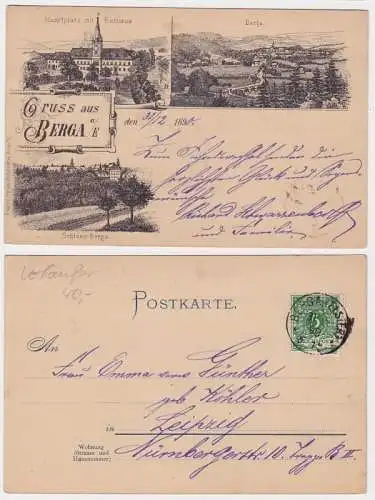 Marktplatz mit Rathaus
Berga.
Gruss aus
BERGA a/E
den 31/12 189
Zum Jahreswechsel senden die
herzlichsten Glück und Segen
wünsche
Richard Schwarzendorff
und Familie.
Schloss Berga.
Vorläufer
40,-
POSTKARTE.
An
Frau Emma verw. Günther
geb. Köhler
in Leipzig
Wohnung
(Strasse und
Hausnummer)
Nürnbergerstr. 10. Treppe B III.